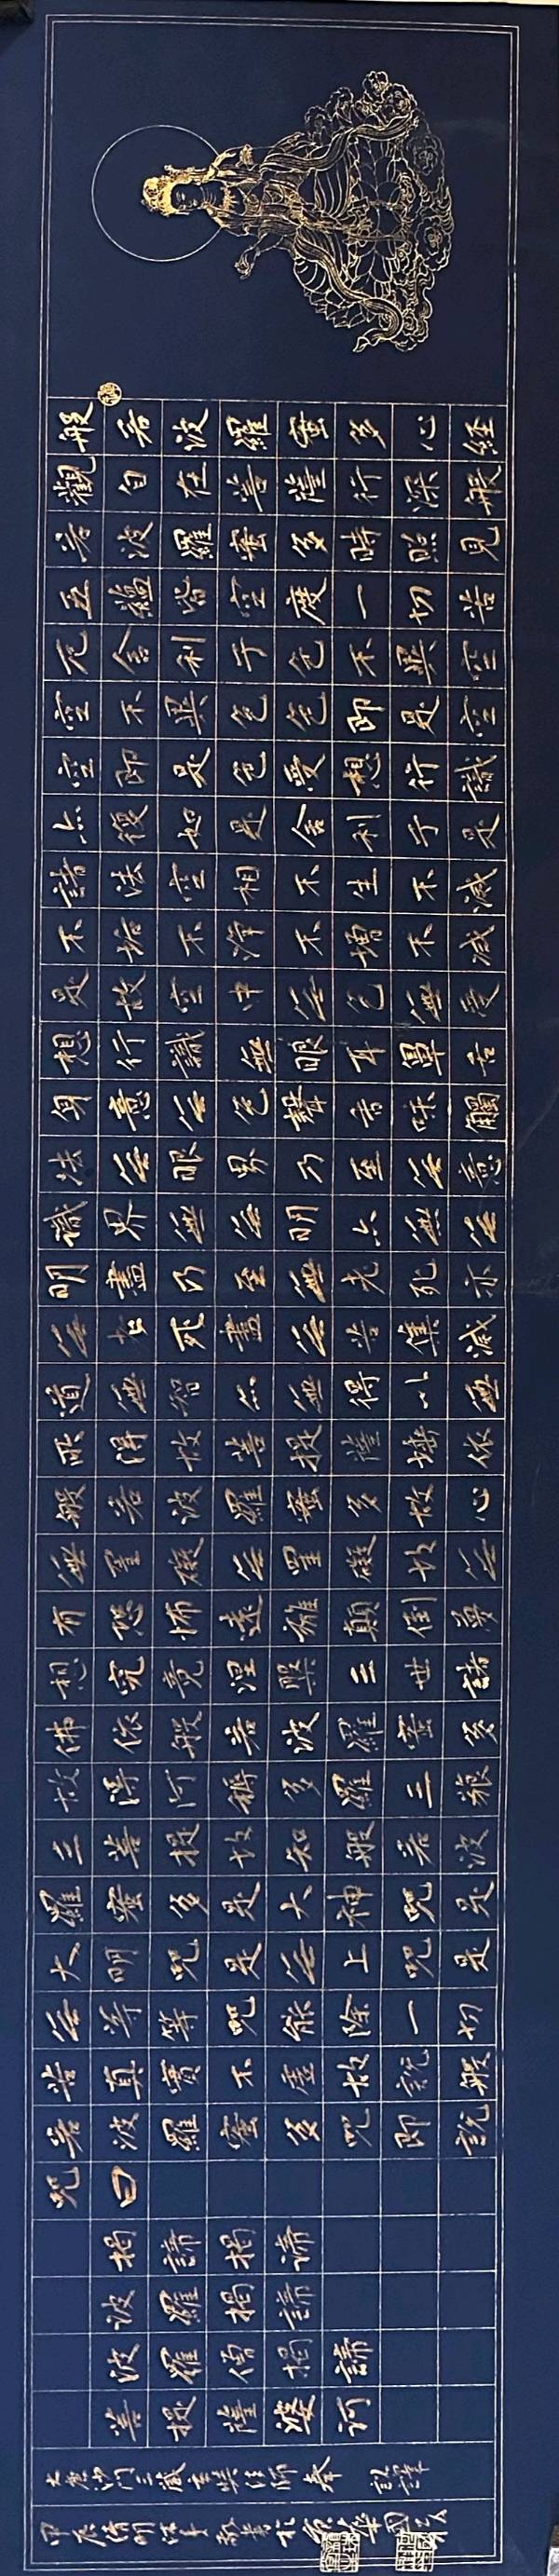 般若波羅蜜多心經
觀自在菩薩行深般
若波羅蜜多時照見
五蘊皆空度一切苦
厄舍利子色不異空
空不異色色即是空
空即是色受想行識
亦復如是舍利子是
諸法空相不生不滅
不垢不淨不增不減
是故空中無色無受
想行識無眼耳鼻舌
身意無色聲香味觸
法無眼界乃至無意
識界無無明亦無無
明盡乃至無老死亦
無老死盡無苦集滅
道無智亦無得以無
所得故菩提薩埵依
般若波羅蜜多故心
無罣礙無罣礙故無
有恐怖遠離顛倒夢
想究竟涅槃三世諸
佛依般若波羅蜜多
故得阿耨多羅三藐
三菩提故知般若波
羅蜜多是大神咒是
大明咒是無上咒是
無等等咒能除一切
苦真實不虛故說般
若波羅蜜多咒即說
咒曰
揭諦揭諦
波羅揭諦
波羅僧揭諦
菩提薩婆訶
大唐沙門三藏玄奘法師奉 詔譯
甲辰清明 敬書於